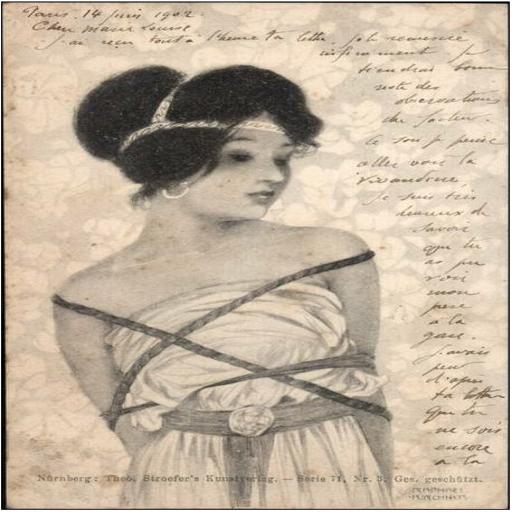 Paris, 14 Juin 1902.
Chere Marie Louise
J'ai reçu tout à l'heure ta lettre. Je te remercie
infiniment. Je
tiendrai bonne
note des
observations
du facteur.
Ce soir je pense
aller voir la
Je suis très
heureux de
savoir
que tu
as pu
voir
mon
père
à la
gare.
J'avais
peur
d'après
ta lettre
que tu
ne sois
encore
à la
Nürnberg: Theo. Stroefer's Kunstverlag. — Serie 71, Nr. 3. Ges. geschützt.
RAPHAEL
KIRCHNER